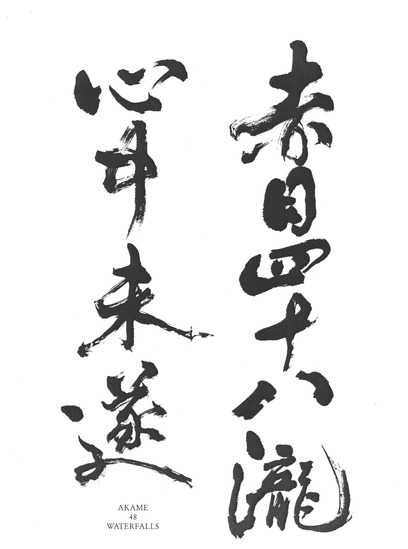 赤目四十八瀧
心中未遂
AKAME
48
WATERFALLS